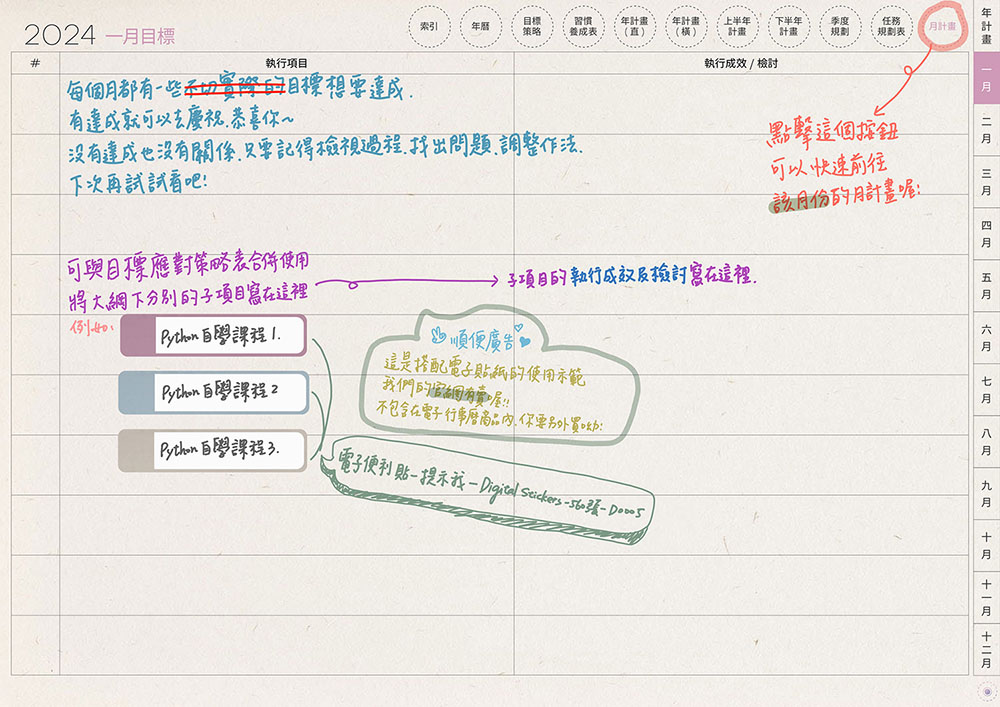 2024 一月目標
索引
年曆
目標
策略
習慣
養成表
年計畫
(直)
年計畫
(橫)
上半年
計畫
下半年
計畫
季度
規劃
任務
規劃表
月計畫
年計畫
#
執行項目
執行成效 / 檢討
每個月都有一些不切實際的目標想要達成.
有達成就可以去慶祝.恭喜你~
沒有達成也沒有關係.只要記得檢視過程.找出問題.調整作法.
下次再試試看吧!
點擊這個按鈕
可以快速前往
該月份的月計畫喔!
可與目標應對策略表合併使用
將大綱下分別的子項目寫在這裡
子項目的執行成效及檢討寫在這裡.
例如:
Python自學課程1.
Python自學課程2
Python自學課程3.
順便廣告
這是搭配電子貼紙的使用示範
我們的官網有賣喔!!
不包含在電子行事曆商品內.你要另外買呦!
電子便利貼-提示我-Digital Stickers-560張-D0005
一月
二月
三月
四月
五月
六月
七月
八月
九月
十月
十一月
十二月